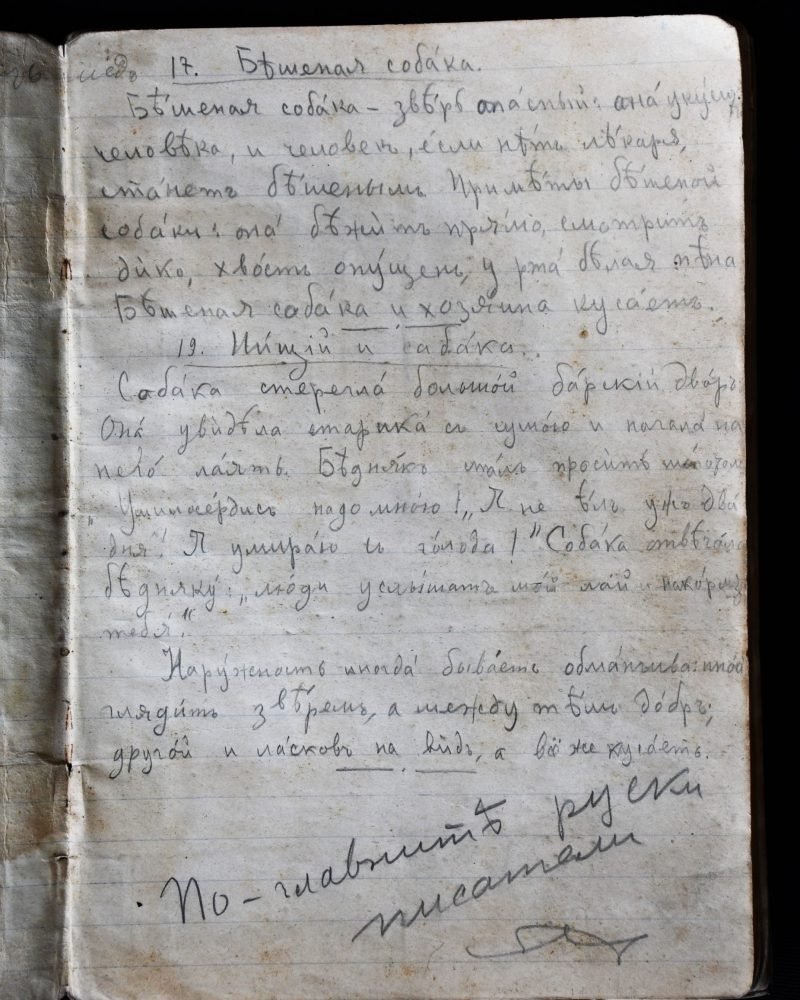 17. Бѣшеная соба́ка.
Бѣ́шеная соба́ка – звѣрь опа́сный: она́ уку́сит
человѣ́ка, и человек, е́сли нѣтъ лѣ́каря,
ста́нетъ бѣ́шенымъ Примѣ́ты бѣ́шеной
соба́ки: она́ бѣжи́тъ пря́мо, смо́тритъ
ди́ко, хвостъ опу́щенъ, у рта́ бѣ́лая пѣ́на
Бѣ́шеная соба́ка и хозя́ина куса́етъ.
19. Ни́щій и саба́ка.
Саба́ка стерегла́ большо́й ба́рскій дворъ.
Она́ уви́дѣла старика́ съ сумо́ю и начала́ на
него́ ла́ять. Бѣдня́къ сталъ проси́ть
„Умилосе́рдись надо мно́ю! „Я не ѣлъ ужъ два
дня! Я умира́ю съ го́лода!" Соба́ка отвѣча́ла
бѣдняку́: „лю́ди услы́шатъ мо́й лай и нако́рмятъ
тебя́."
Нару́жность иногда́ быва́етъ обма́нчива: иной
гляди́тъ звѣ́ремъ, а между тѣ́мъ добръ;
друго́й и ла́сковъ на видъ, а всё же куса́етъ.
По-главнитѣ руски
писатели